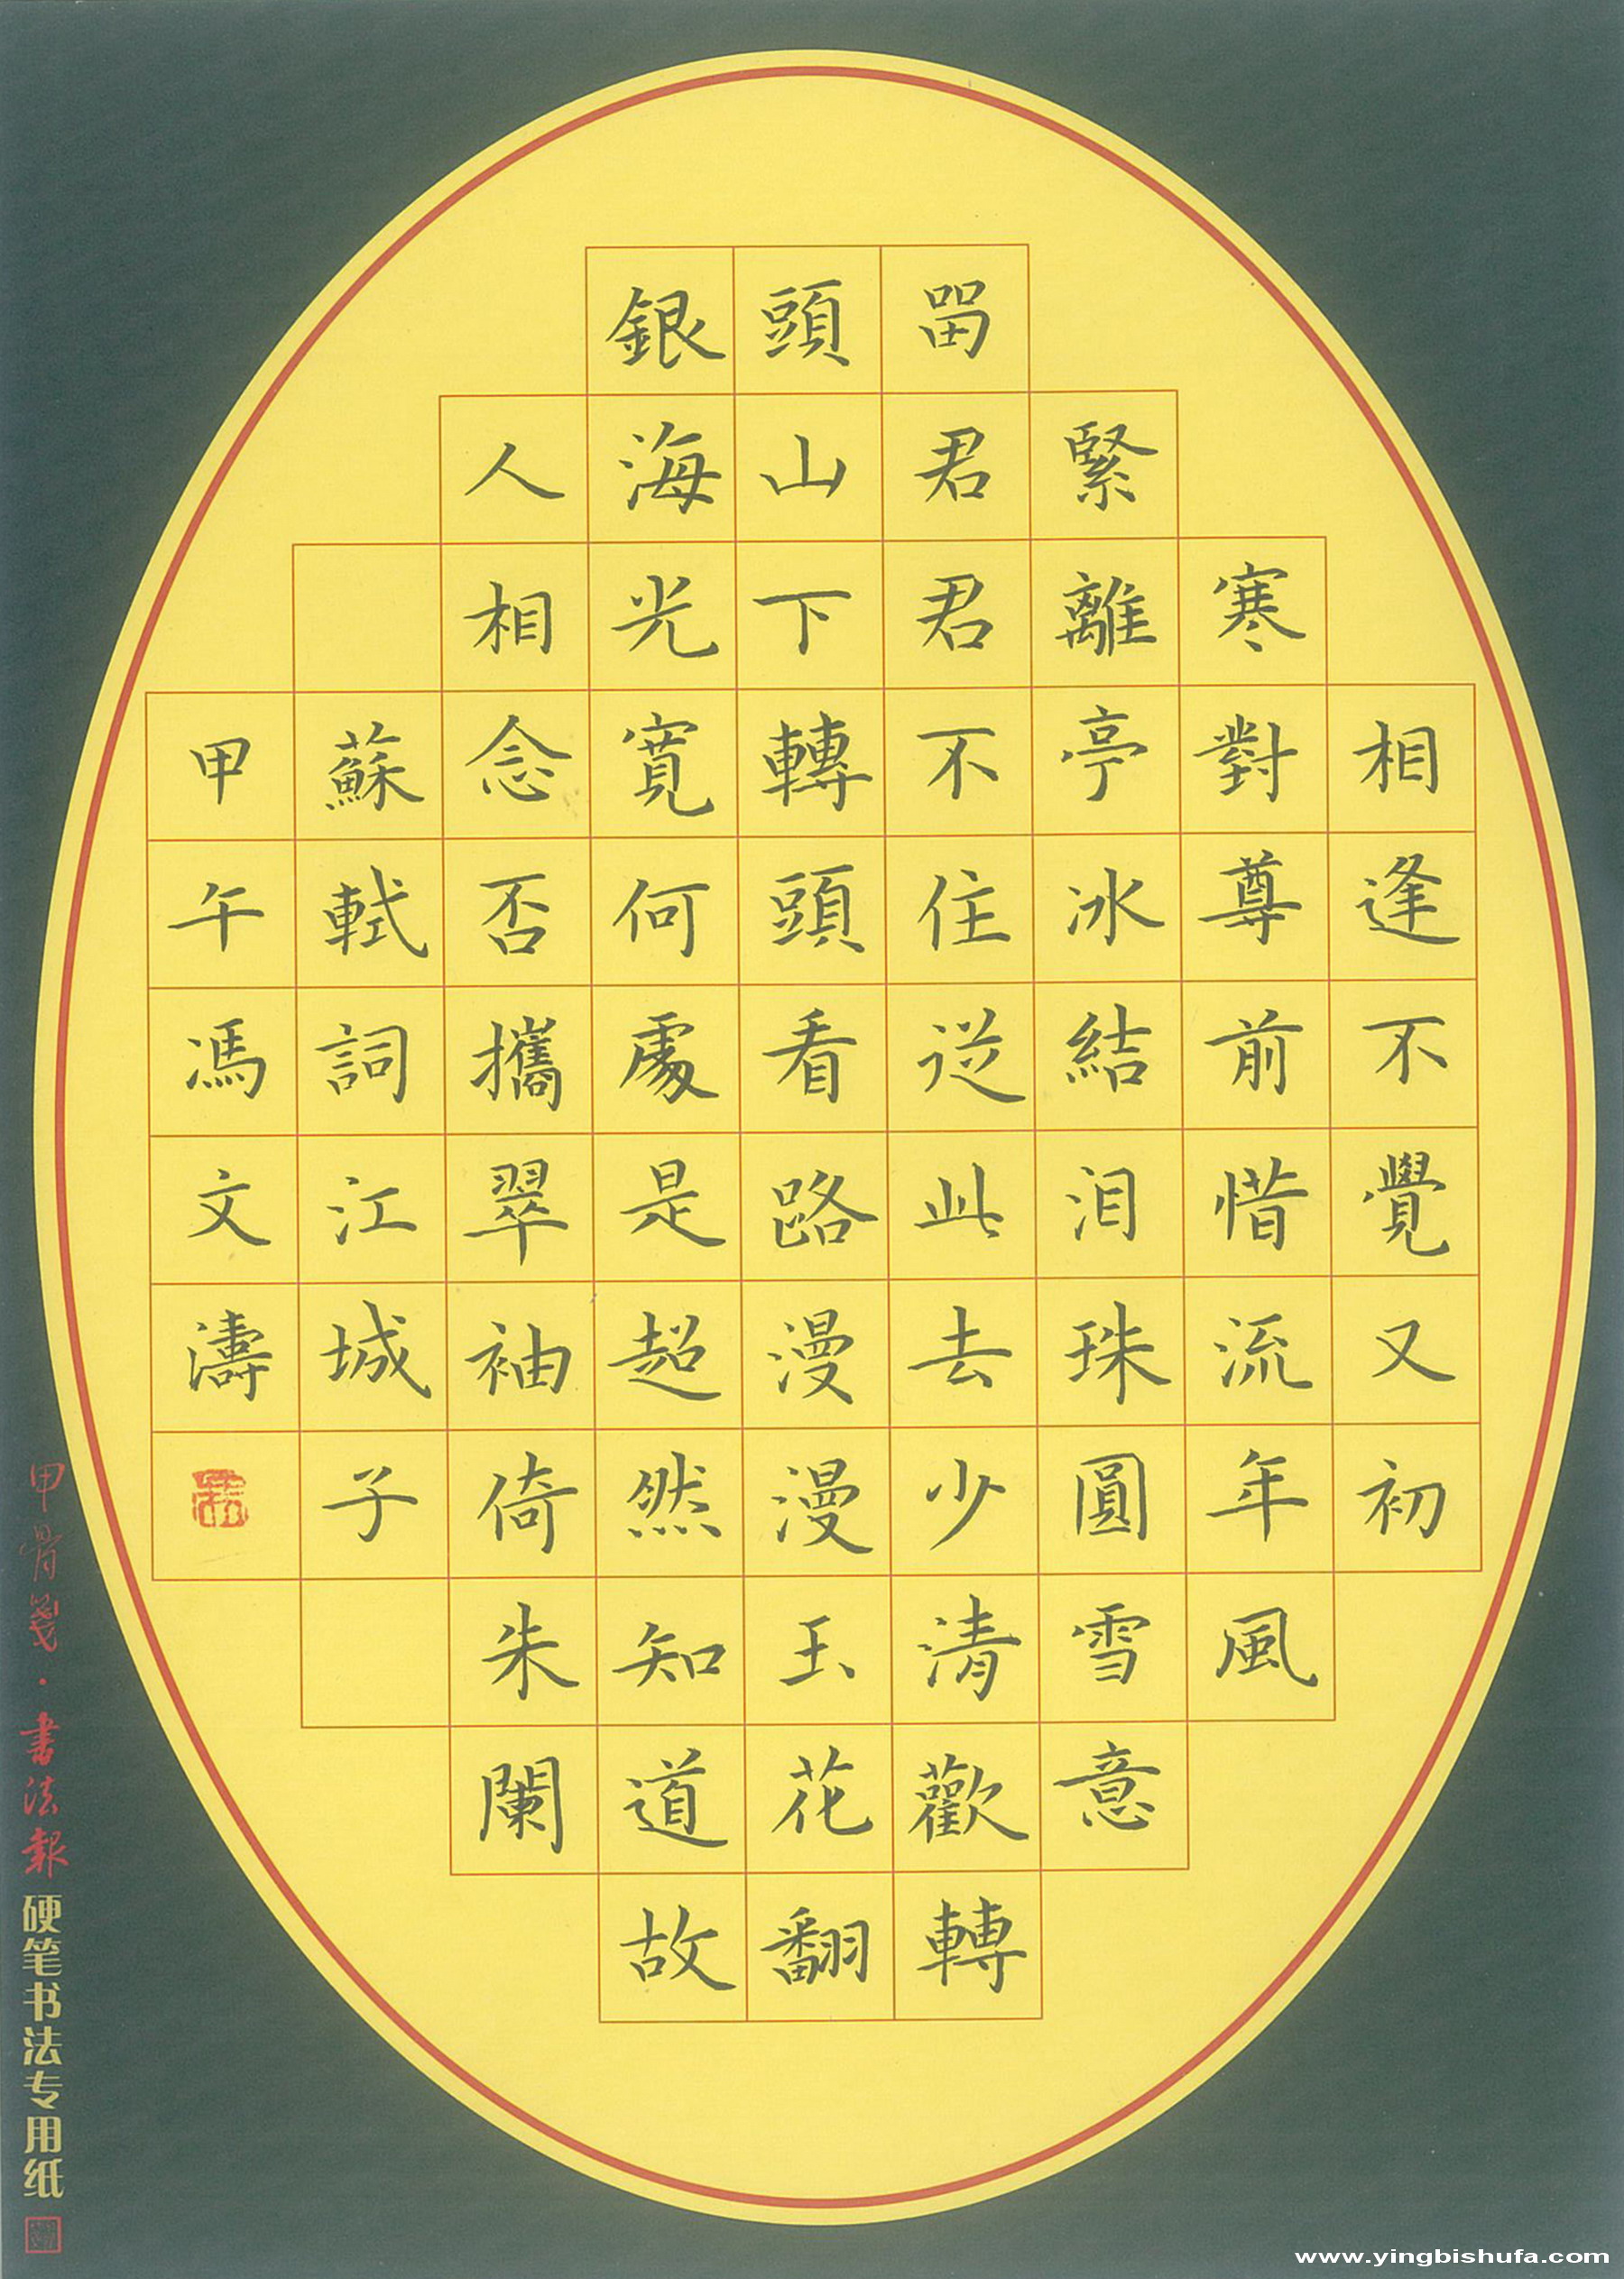 相逢不覺又初
寒對尊前惜流年風
緊離亭冰結泪珠圓雪意
留君君不住從此去少清歡轉
頭山下轉頭看路漫漫玉花翻
銀海光寬何處是超然知道故
人相念否攜翠袖倚朱闌
蘇軾詞江城子
甲午馮文濤
甲骨箋·書法報硬笔书法专用纸
www.yingbishufa.com